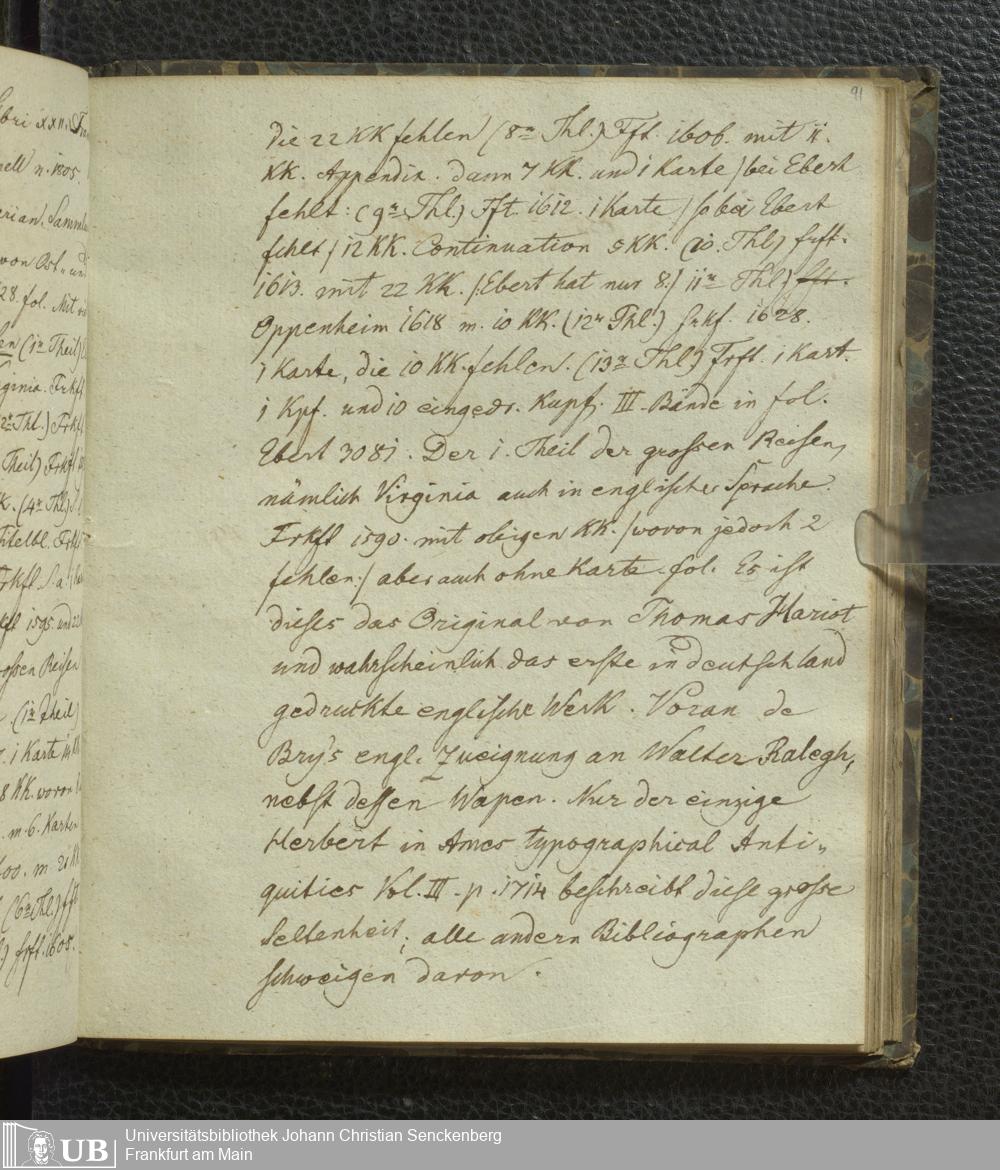 91
die 22 KK fehlen (8r Thl.) Fft. 1606. mit 11.
KK. Appendix. dann 7 KK. und 1 Karte / bei Ebert
fehlt: (9r Thl.) Fft. 1612. 1 Karte / so bei Ebert
fehlt / 12 KK. Continuation 5 KK. (10. Thl) frft.
1613. mit 22 KK. /: Ebert hat nur 8:/ 11r Thl)
Oppenheim 1618 m. 10 KK. (12r Thl.) frkf. 1628.
1 Karte, die 10 KK. fehlen. (13r Thl) Frft. 1 Kart.
1 Kpf. und 10 eingedr. Kupf. III Bände in fol.
Ebert 3081. Der 1. Theil der grossen Reisen,
nämlich Virginia auch in englischer Sprache.
Frkft 1590. mit obigen KK. / wovon jedoch 2
fehlen:/ aber auch ohne Karte. fol. Es ist
dieses das Original von Thomas Hariot
und wahrscheinlich das erste in deutschland
gedruckte englische Werk. Voran de
Bry's engl. Zueignung an Walter Ralegh,
nebst dessen Wapen. Nur der einzige
Herbert in Ames typographical Anti„
quities Vol. III. p. 1714 beschreibt diese grosse
Seltenheit; alle andern Bibliographen
schweigen davon.
UB
Universitätsbibliothek Johann Christian Senckenberg
Frankfurt am Main